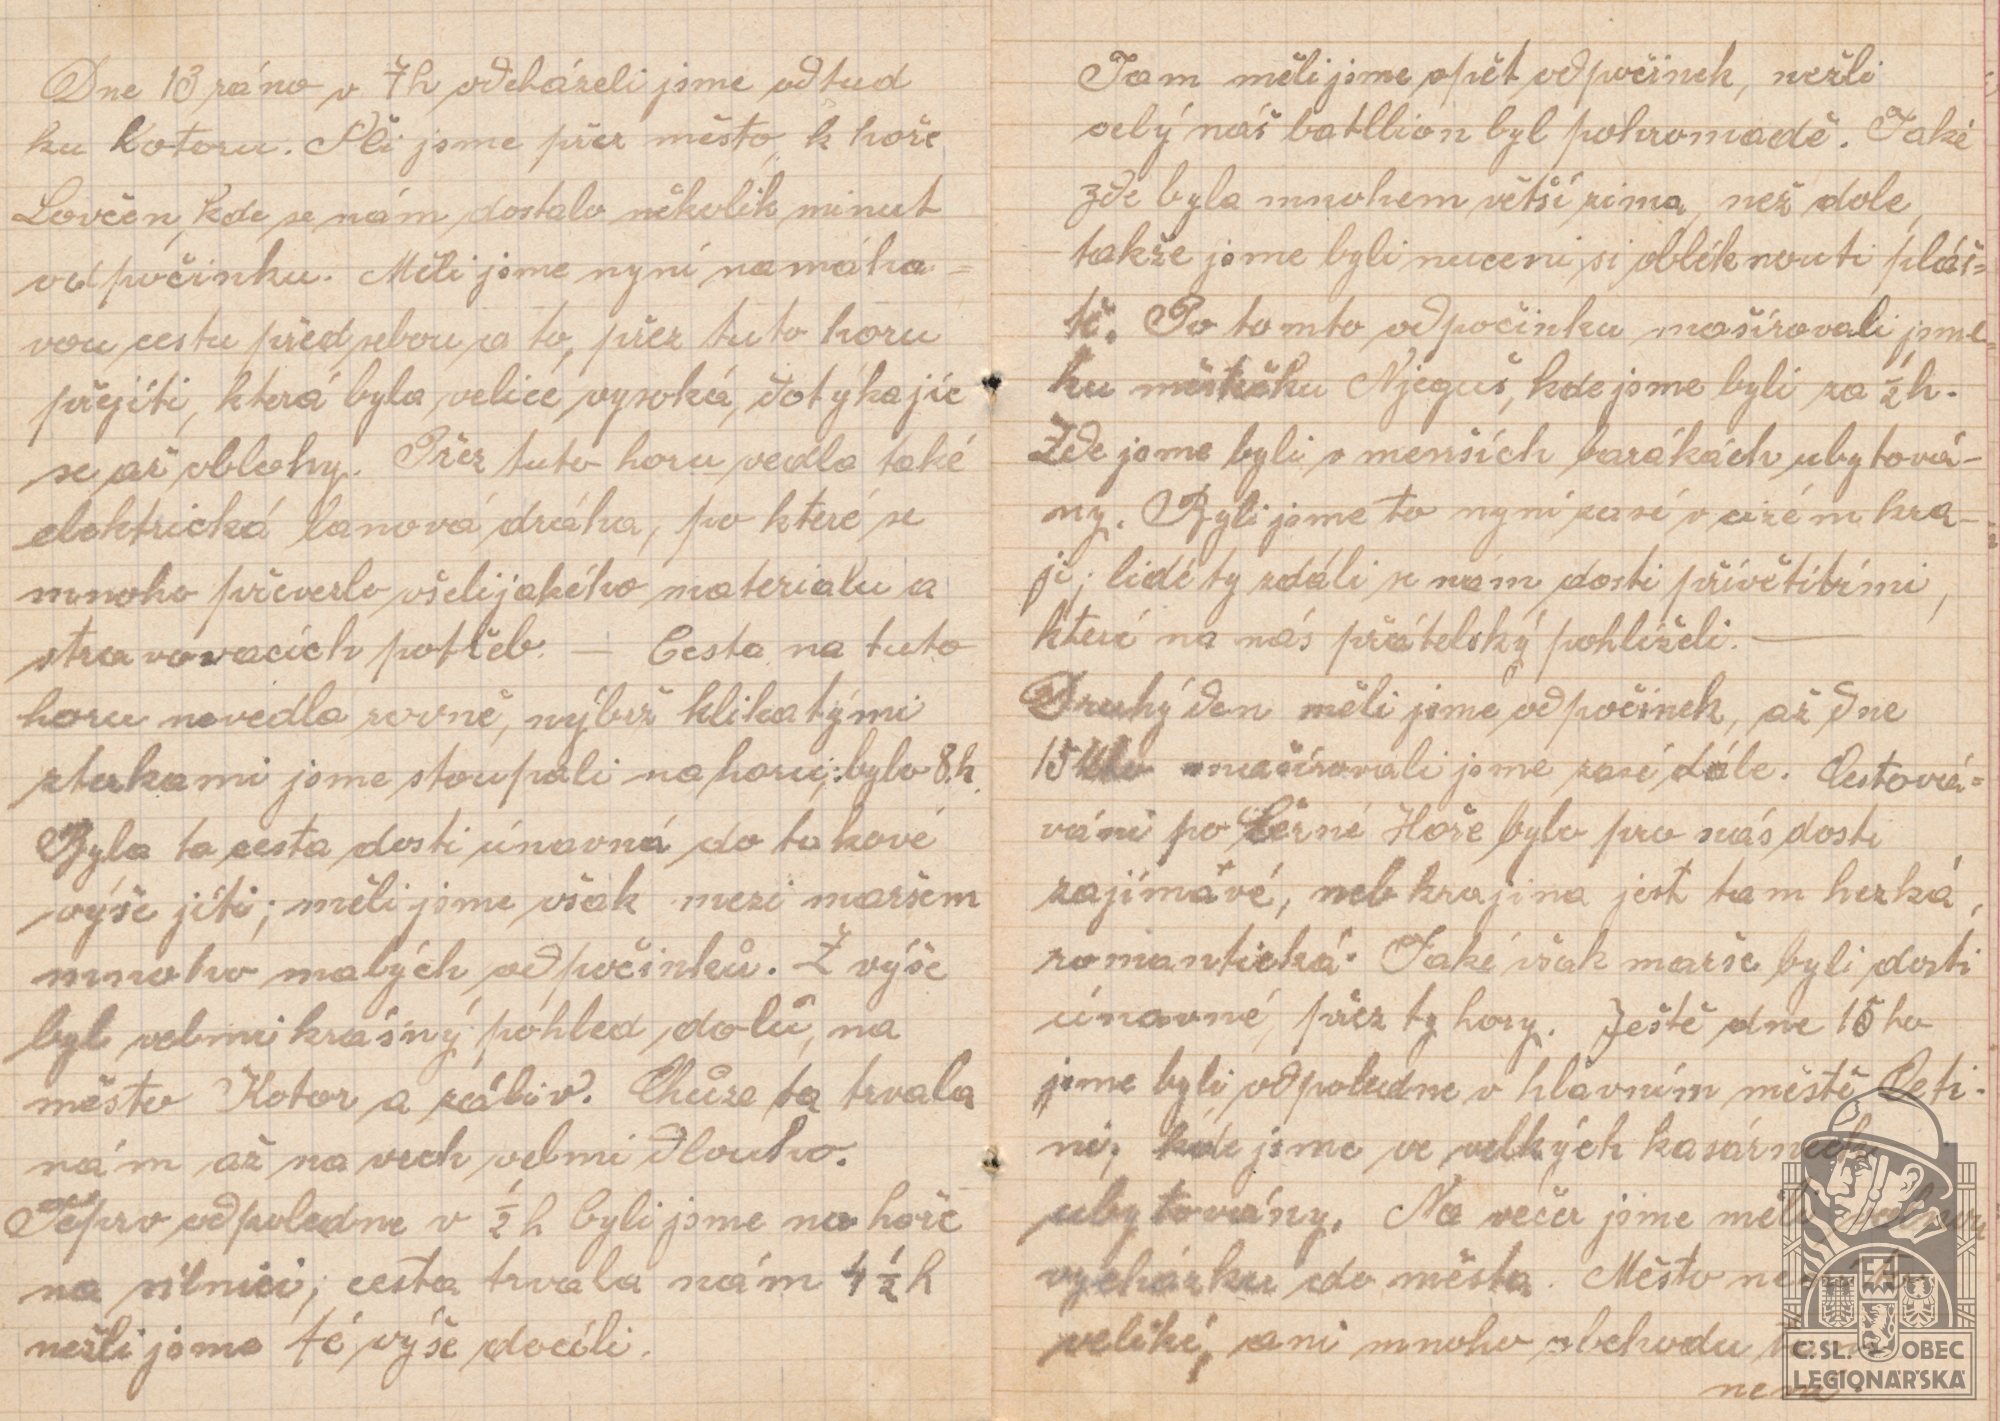 Dne 13 ráno v 7h odcházeli jsme odtud
ku Kotoru. Šli jsme přez město, k hoře
Lovčen, kde se nám dostalo několik minut
odpočinku. Měli jsme nyní namáha-
vou cestu před sebou a to, přez tuto horu
přejíti, která byla velice vysoká, dotýkajíc
se až oblohy. Přez tuto horu vedla také
elektrická lanová dráha, po které se
mnoho převezlo všelijakého materialu a
stravovacích potřeb. — Cesta na tuto
horu nevedla rovně, nýbrž klikatými
jsme stoupali nahoru; bylo 8 h.
Byla to cesta dosti únavná do takové
výše jíti; měli jsme však mezi maršem
mnoho malých odpočinků. Z výše
byl velmi krásný pohled dolů, na
město Kotor a záliv. Chůze ta trvala
nám až na vrch velmi dlouho.
Teprv odpoledne v ½ h byli jsme na hoře
na silnici; cesta trvala nám 4 ½ h
nežli jsme té výše docíli.
Tam měli jsme opět odpočinek, nežli
celý náš batllion byl pohromadě. Také
zde byla mnohem větší zima, než dole,
takže jsme byli nuceni si obléknouti pláš-
tě. Po tomto odpočinku mašírovali jsme
ku městečku Njeguš, kde jsme byli za ½ h.
Zde jsme byli v menších barákách ubytová-
ny. Byli jsme to nyní zase v cizém kra-
ji; lidé ty zdáli se nám dosti přívětivími,
které na nás přátelský pohlíželi. —
Druhý den měli jsme odpočinek, až dne
15 mašírovali jsme zase dále. Cestová-
vání po Černé Hoře bylo pro nás dosti
zajímavé, neb krajina jest tam hezká,
romantická. Také však marše byli dosti
únavné, přez ty hory. Ještě dne 15 ho
jsme byli odpoledne v hlavním městě Ceti-
ni, kde jsme ve velkých kasárnech
ubytovány. Na večer jsme měli
vycházku do města. Město
veliké, ani mnoho obchodu
není.
Č. SL. OBEC
LEGIONÁŘSKÁ